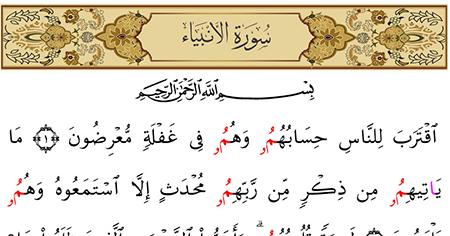 سُورَةُ الْأَنْبِيَاءِ
بِسْمِ اللَّهِ الرَّحْمَٰنِ الرَّحِيمِ
اَقْتَرَبَ لِلنَّاسِ حِسَابُهُمُۥ وَهُمُۥ فِى غَفْلَةٍ مُّعْرِضُونَ ﴿١﴾ مَا
يَاتِيهِمُۥ مِن ذِكْرٍ مِّن رَّبِّهِمُۥ مُحْدَثٍ إِلَّا اَسْتَمَعُوهُ وَهُمُۥ